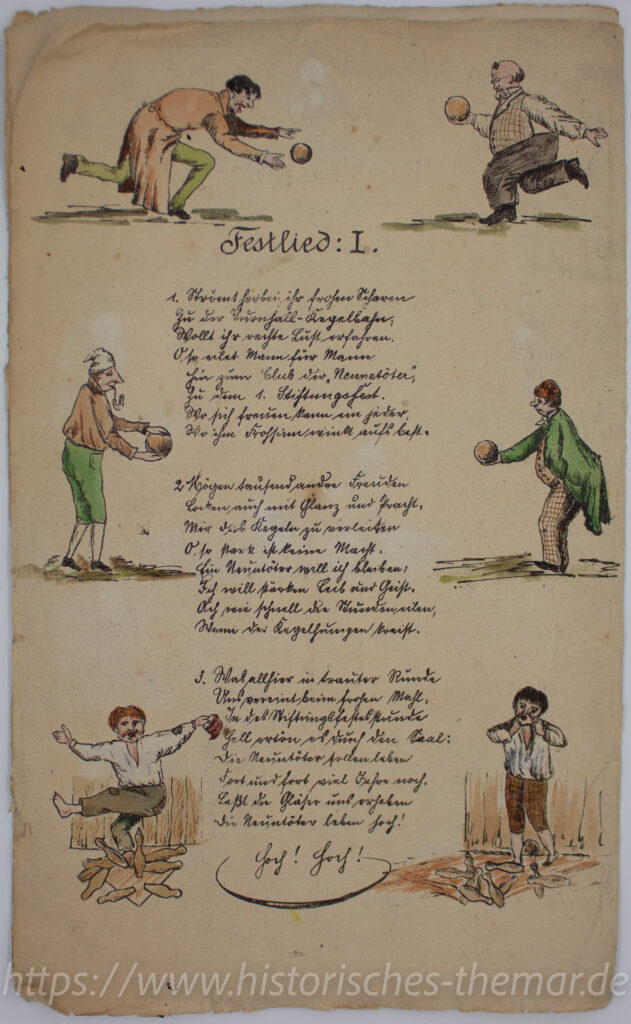 Festlied: I.
1. Strömt herbei ihr frohen Scharen
Zu der Turnhall-Kegelbahn,
Wollt ihr rechte Lust erfahren.
O so eilet Mann für Mann
Hin zum Club der „Neuntöter“,
Zu dem 1. Stiftungsfest.
Wo sich freuen kann ein jeder,
Wo ihm Frohsinn winkt aufs best.
2 Mögen tausend andre Freuden
Locken auch mit Glanz und Pracht,
Mir das Kegeln zu verleiden
O so stark ist keine Macht.
Ein Neuntöter will ich bleiben;
Ich will stärken Leib und Geist.
Ach wie schnell die Stunden eilen,
Wenn der Kegelhumpen kreist.
3. Was allhier in trauter Runde
Uns vereint beim frohen Mahl,
In des Stiftungsfestes Stunde
Hell ertön es durch den Saal:
Die Neuntöter sollen leben
Fort und fort viel Jahre noch.
Laßt die Gläser uns erheben
Die Neuntöter leben hoch!
Hoch! Hoch!
https://www.historisches-themar.de